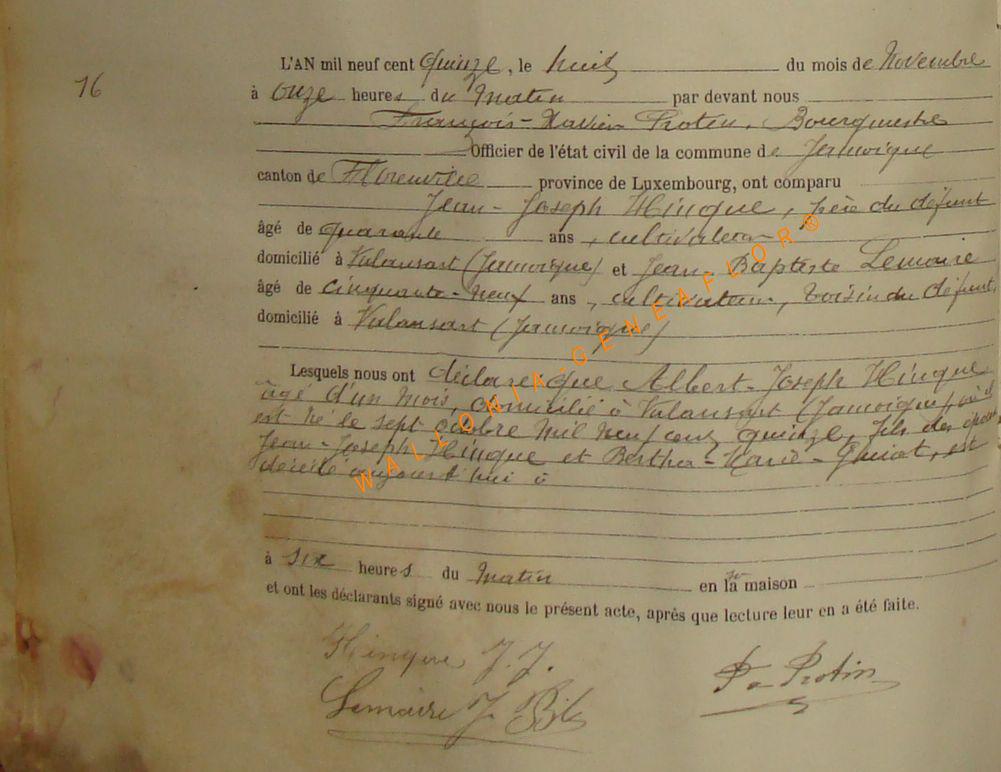 76
L'AN mil neuf cent quinze, le huit du mois de Novembre
à onze heures du matin par devant nous
François-Xavier Protin, Bourgmestre
Officier de l'état civil de la commune de Jamoigne
canton de Florenville province de Luxembourg, ont comparu
Jean-Joseph Hinque, père du défunt
âgé de quarante ans, cultivateur
domicilié à Valansart (Jamoigne) et Jean-Baptiste Lemaire
âgé de cinquante-neuf ans, cultivateur, voisin du défunt,
domicilié à Valansart (Jamoigne)
Lesquels nous ont déclaré que Albert-Joseph Hinque
âgé d'un mois, domicilié à Valansart (Jamoigne), où il
est né le sept octobre mil neuf cent quinze, fils des époux
Jean-Joseph Hinque et Bertha-Marie-, est
décédé aujourd'hui à
à six heures du matin en sa maison
et ont les déclarants signé avec nous le présent acte, après que lecture leur en a été faite.
Hinque J. J.
Lemaire J. Bte
Protin
WALLONIA-GENEAFLOR®